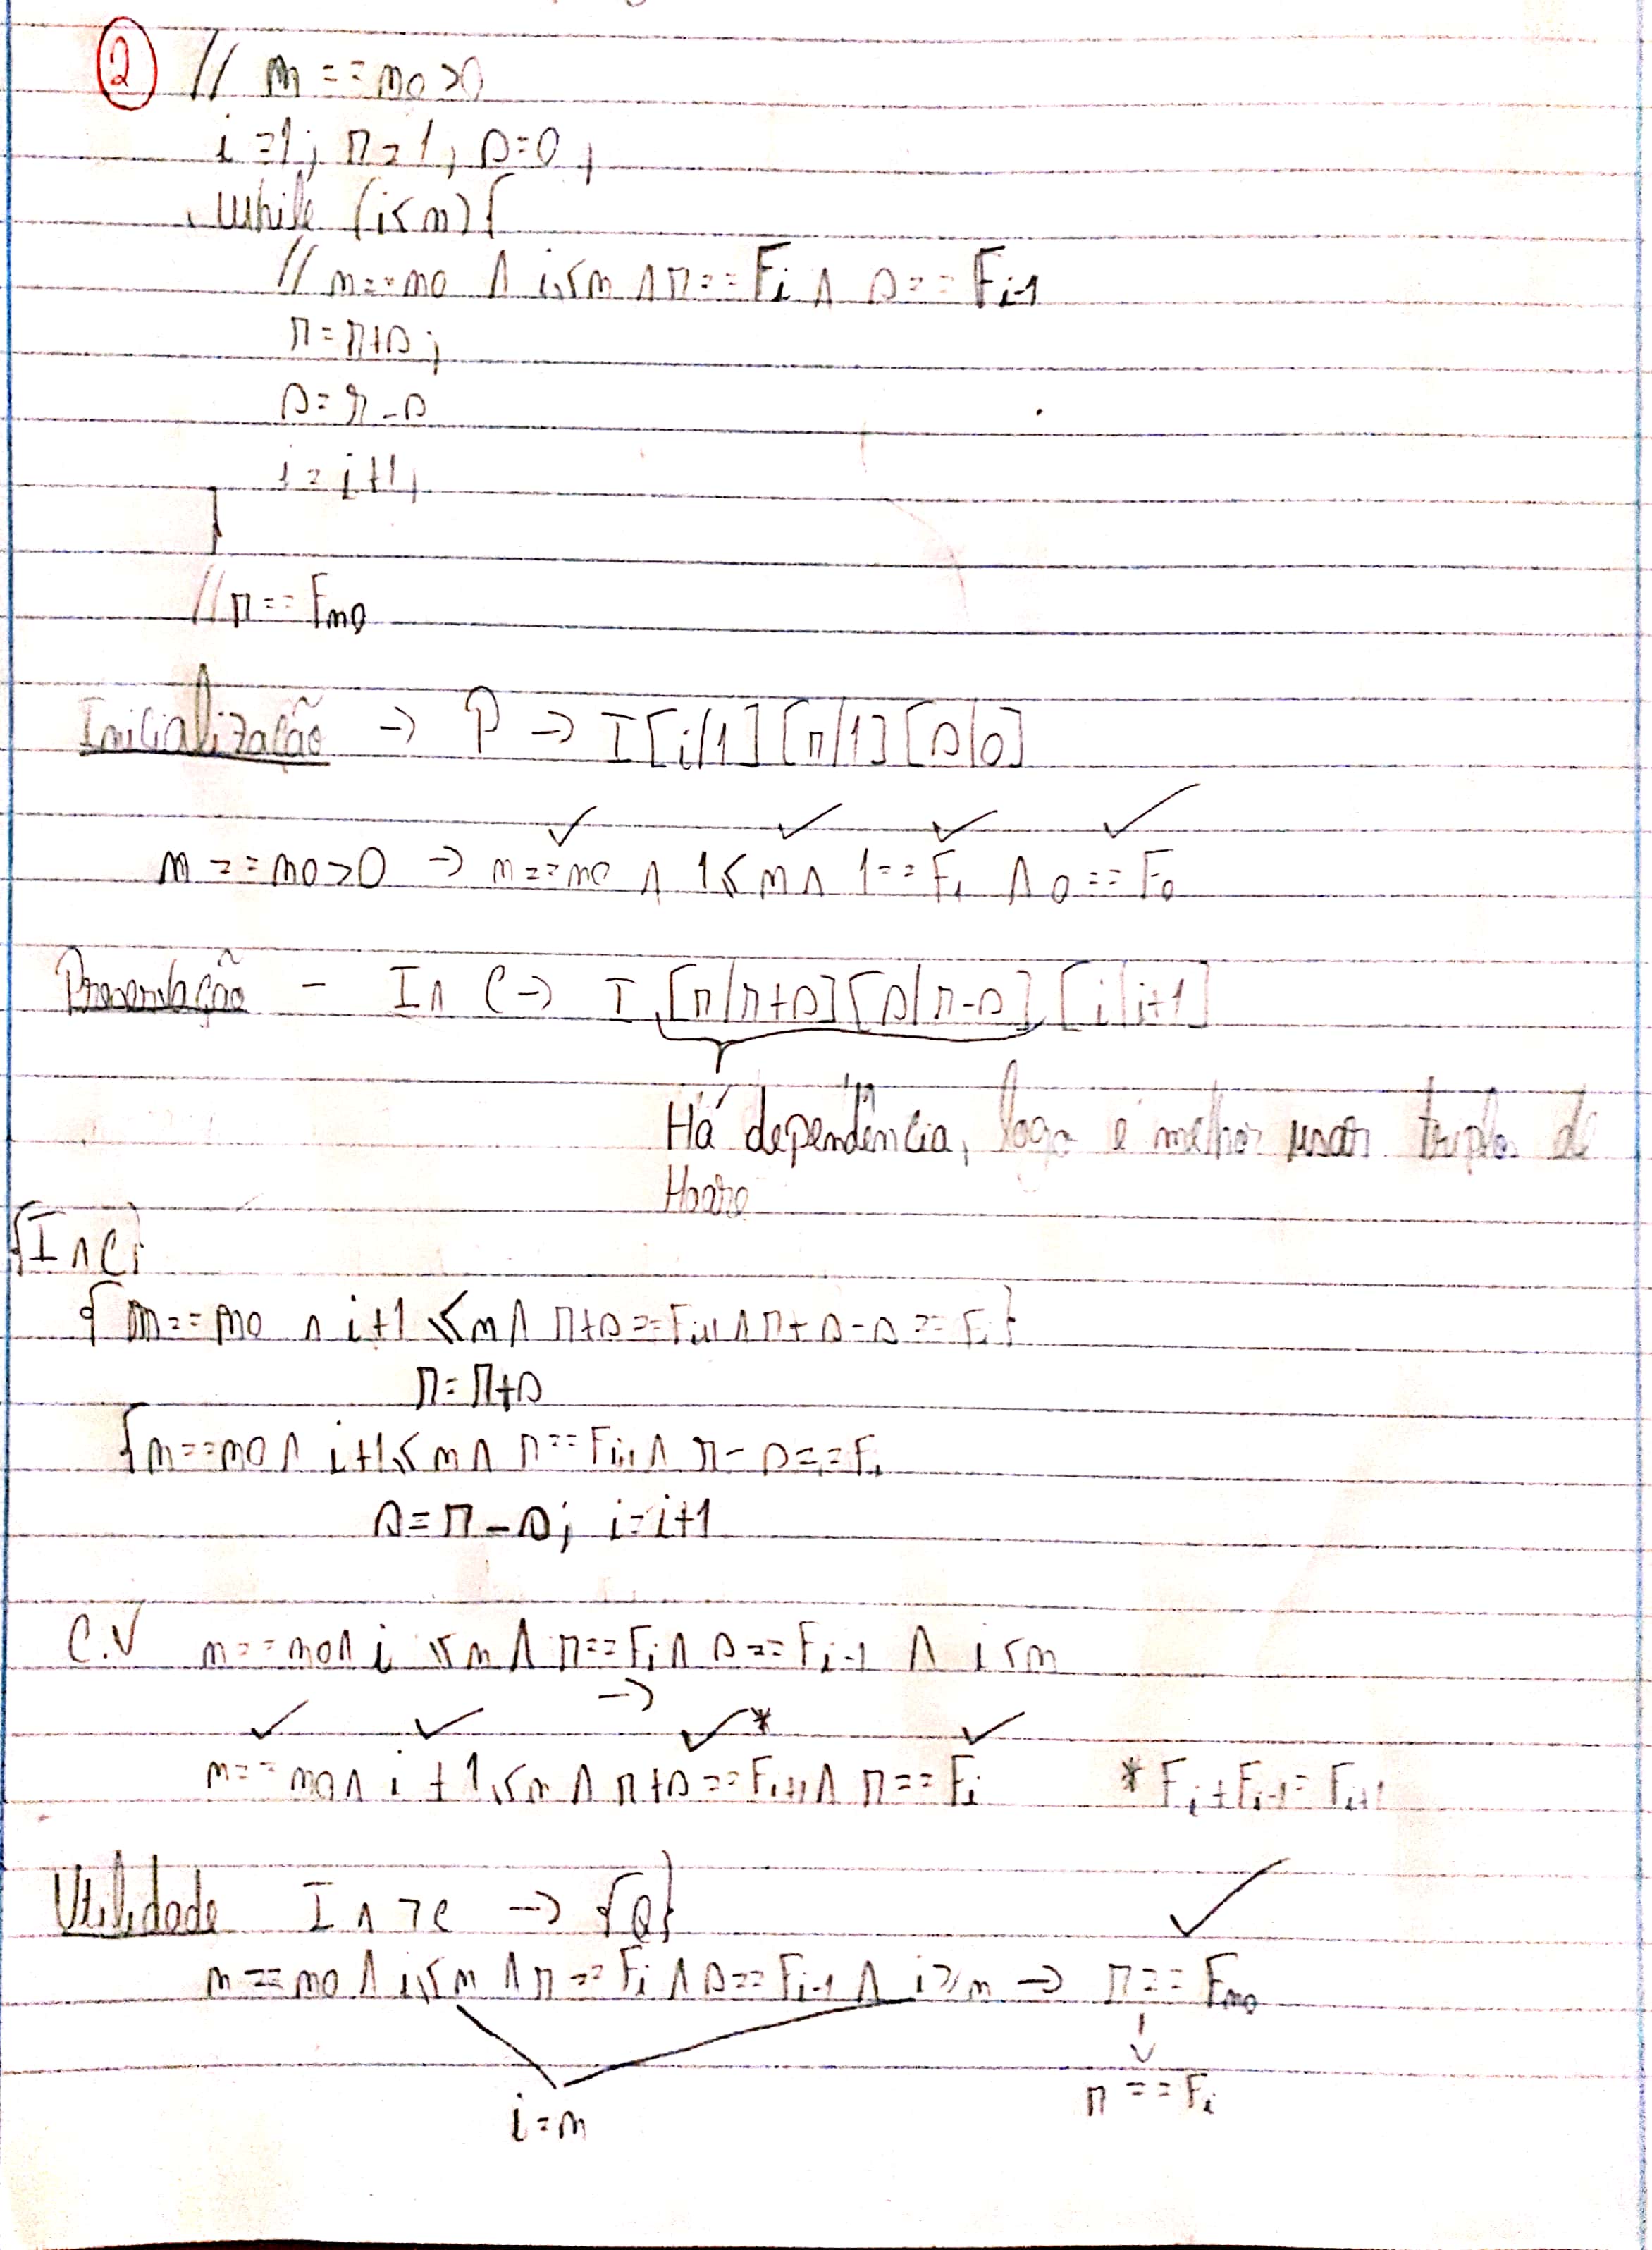 ② // n == n0 > 0
i = 1; r = 1; s = 0;
while (i < n) {
// n == n0 ∧ i ≤ n ∧ r == Fi ∧ s == Fi-1
r = r+s;
s = r-s
i = i+1;
}
// r == Fn0
Inicialização → P → I [i/1] [r/1] [s/0]
✓ ✓ ✓ ✓
n == n0 > 0 → n == n0 ∧ 1 ≤ n ∧ 1 == F1 ∧ 0 == F0
Preservação - I ∧ C → I [r/r+s] [s/r-s] [i/i+1]
Há dependência, logo é melhor usar triplos de
Hoare
{I ∧ C}
{ n == n0 ∧ i+1 ≤ n ∧ r+s == Fi+1 ∧ r+s-s == Fi }
r = r+s
{ n == n0 ∧ i+1 ≤ n ∧ r == Fi+1 ∧ r-s == Fi
s = r-s; i = i+1
C.V n == n0 ∧ i ≤ n ∧ r == Fi ∧ s == Fi-1 ∧ i < n
→
✓ ✓ ✓* ✓
n == n0 ∧ i+1 ≤ n ∧ r+s == Fi+1 ∧ r == Fi * Fi + Fi-1 = Fi+1
Utilidade I ∧ ¬c → {Q} ✓
n == n0 ∧ i ≤ n ∧ r == Fi ∧ s == Fi-1 ∧ i ≥ n → r == Fn0
r == Fi
i = n